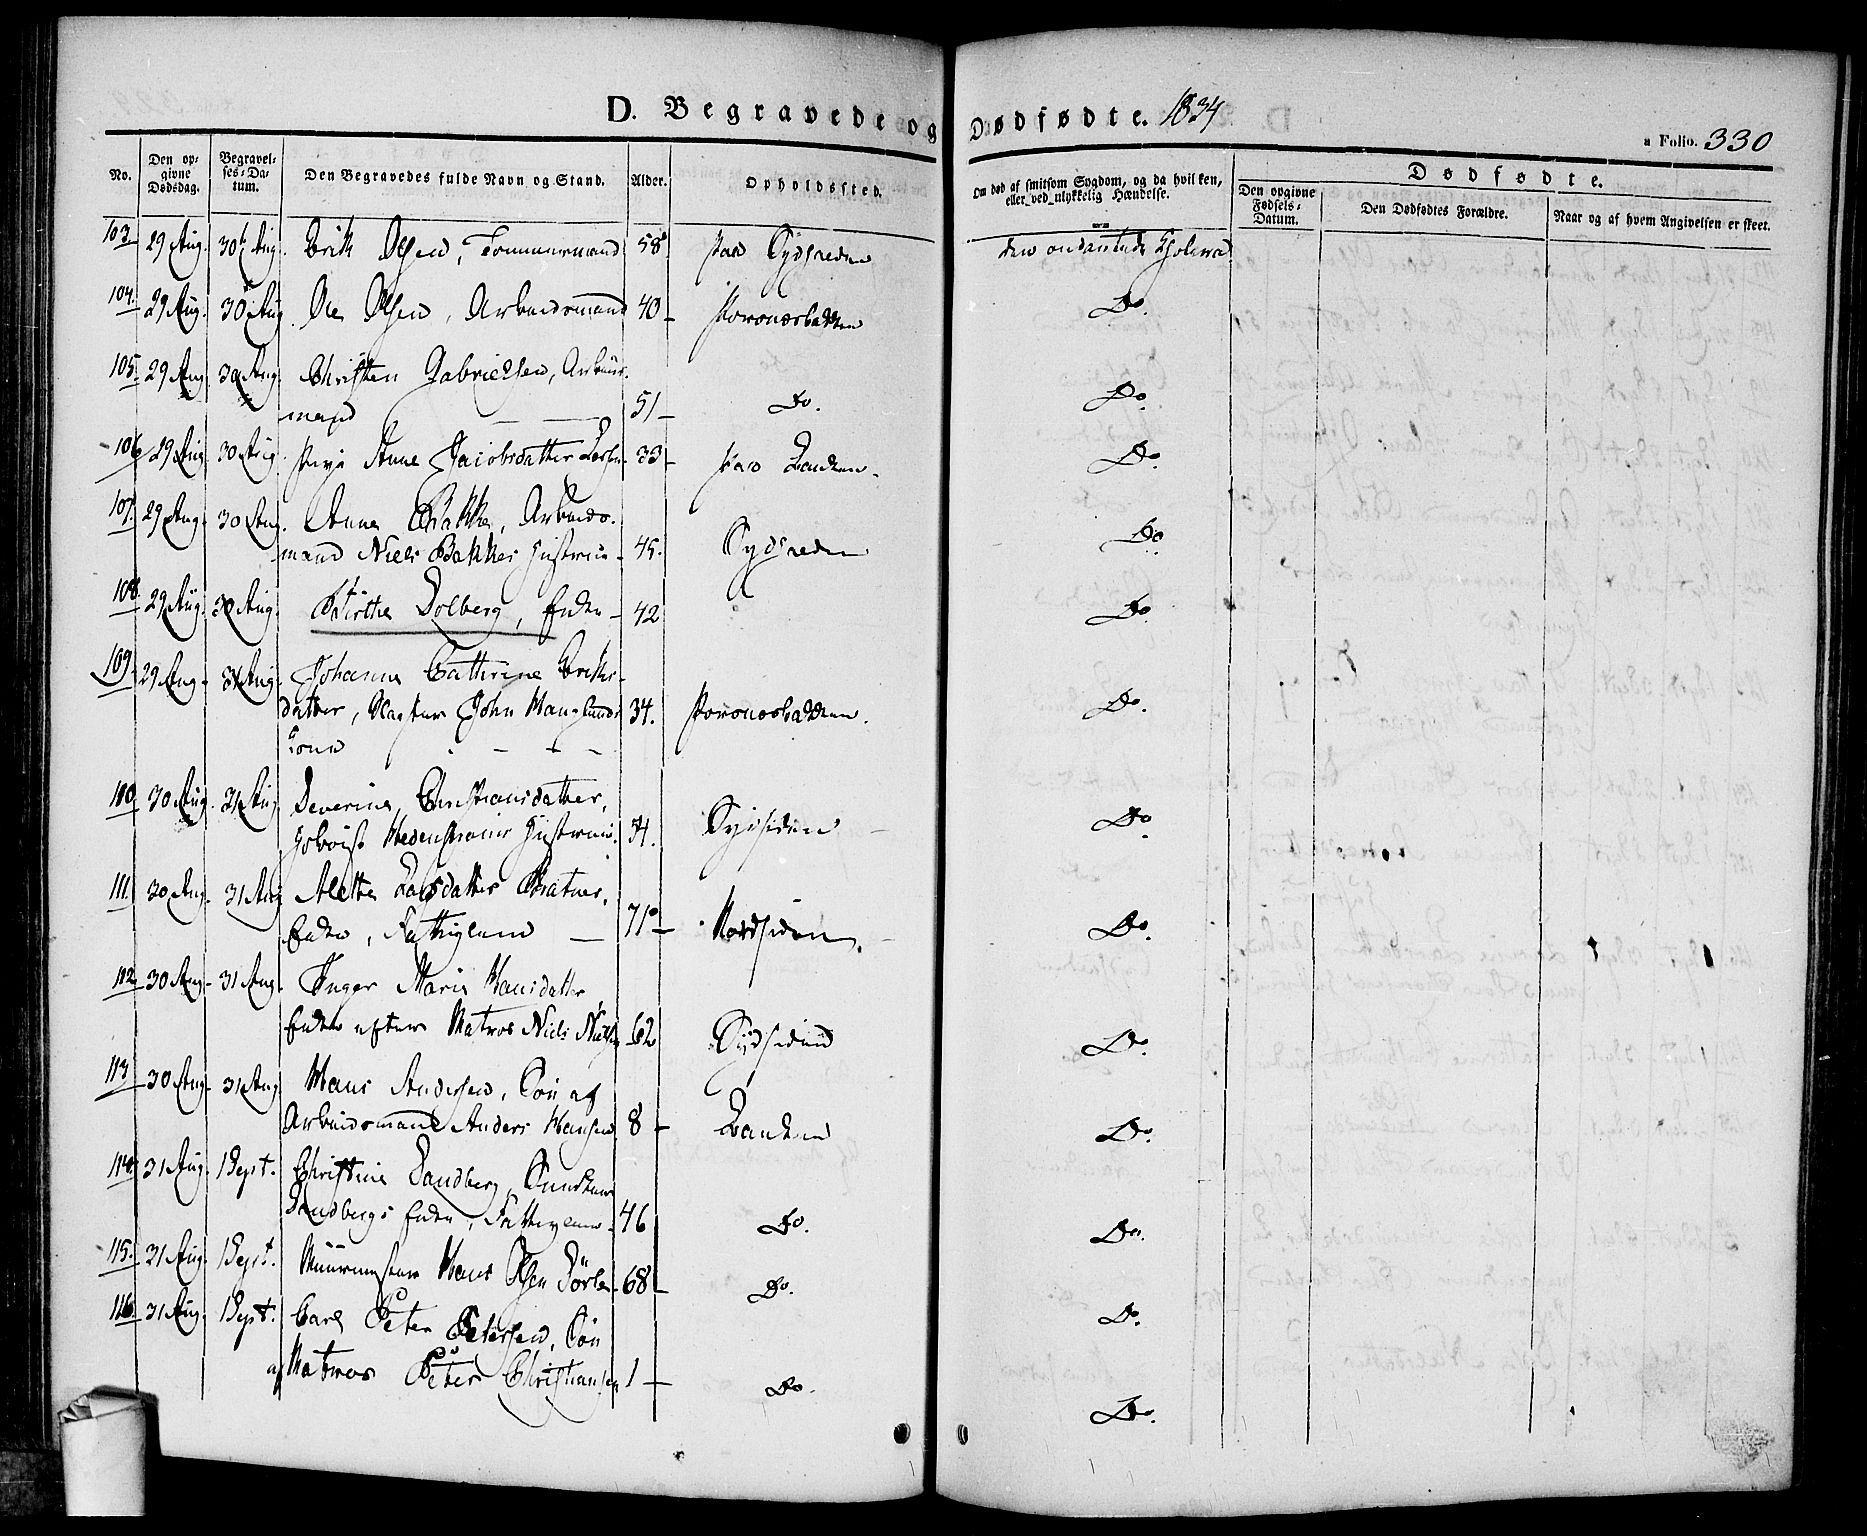 D. Begravede og Dødfødte. 1834
a Folio. 330
No.
Den opgivne Dødsdag.
Begravelses-Datum.
Den Begravedes fulde Navn og Stand.
Alder.
Opholdssted.
Om død af smitsom Sygdom, og da hvilken, eller ved ulykkelig Hændelse.
Dødfødte.
Den opgivne Fødsels-Datum.
Den Dødfødtes Forældre.
Naar og af hvem Angivelsen er skeet.
103. 29 Aug. 30 Aug. Erik Olsen, Tømmermand 58 paa Sydsiden den ondartede Cholera
104. 29 Aug. 30 Aug. Ole Olsen, Arbeidsmand 40 – Do
105. 29 Aug. 30 Aug. Christen Gabrielsen, Arbeids-
mand 51 – Do. Do.
106 29 Aug. 30 Aug. Pige Anne Jacobsdatter 33 – paa Do.
107. 29 Aug. 30 Aug. Anne Bakke, Arbeids-
mand Niels Bakkes Hustrue 45. Sydsiden Do
108. 29 Aug. 30 Aug. Birthe Dolberg, Enke – 42 Do
109. 29 Aug. 31 Aug. Johanne Cathrine Eriks-
datter, John Kone 34. Do.
110 30 Aug. 31 Aug Severine Christiansdatter,
Hustrue 54. Sydsiden Do.
111. 30 Aug. 31 Aug Alethe Larsdatter
Enke, Fattiglem – 71 – Nordsiden. Do.
112 30 Aug. 31 Aug. Inger Marie Hansdatter
Enke efter Matros Niels 62 Sydsiden Do.
113 30 Aug. 31 Aug Hans Andersen, Søn af
Arbeidsmand Anders Hansen 8 – Do.
114. 31 Aug. 1 Sept. Christine Sandberg,
Sandbergs Enke, Fattiglem. 46 Do. Do.
115. 31 Aug. 1 Sept. Muurmester Hans Olsen 68 – Do. Do.
116. 31 Aug. 1 Sept. Carl Peter Petersen, Søn
af Matros Peter Christiansen 1 – Do. Do.